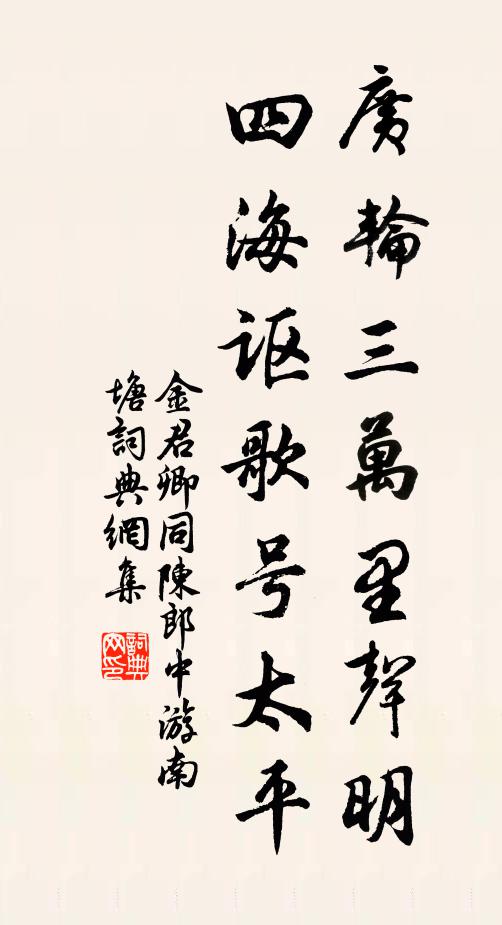 广輪三萬里聲明
四海讴歌号太平
金君卿同陳郎中游南
塘詞典網集
詞典
网印